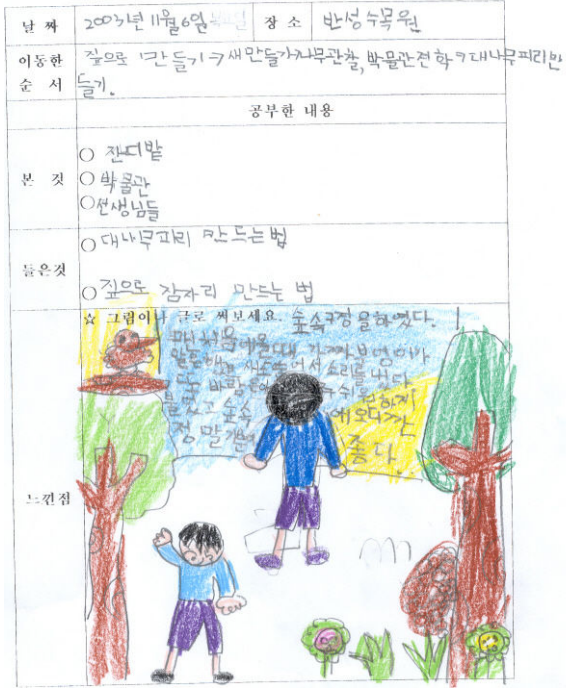 날 짜 2003년 11월 6일 장 소 반성수목원
이동한 짚으로 만들기→새만들기→나무관찰, 박물관견학→대나무피리만
순 서 들기.
공부한 내용
본 것
○ 잔디밭
○ 박물관
○선생님들
들은것
○ 대나무피리 만드는법
○ 짚으로 잠자리 만드는 법
느낀점
☆ 그림이나 글로 써보세요. 숲속구경을하였다.
맨처음에올때
새소 어서 소리를냈다
바람
불었고 숲속 에오니깐
정말 좋다.